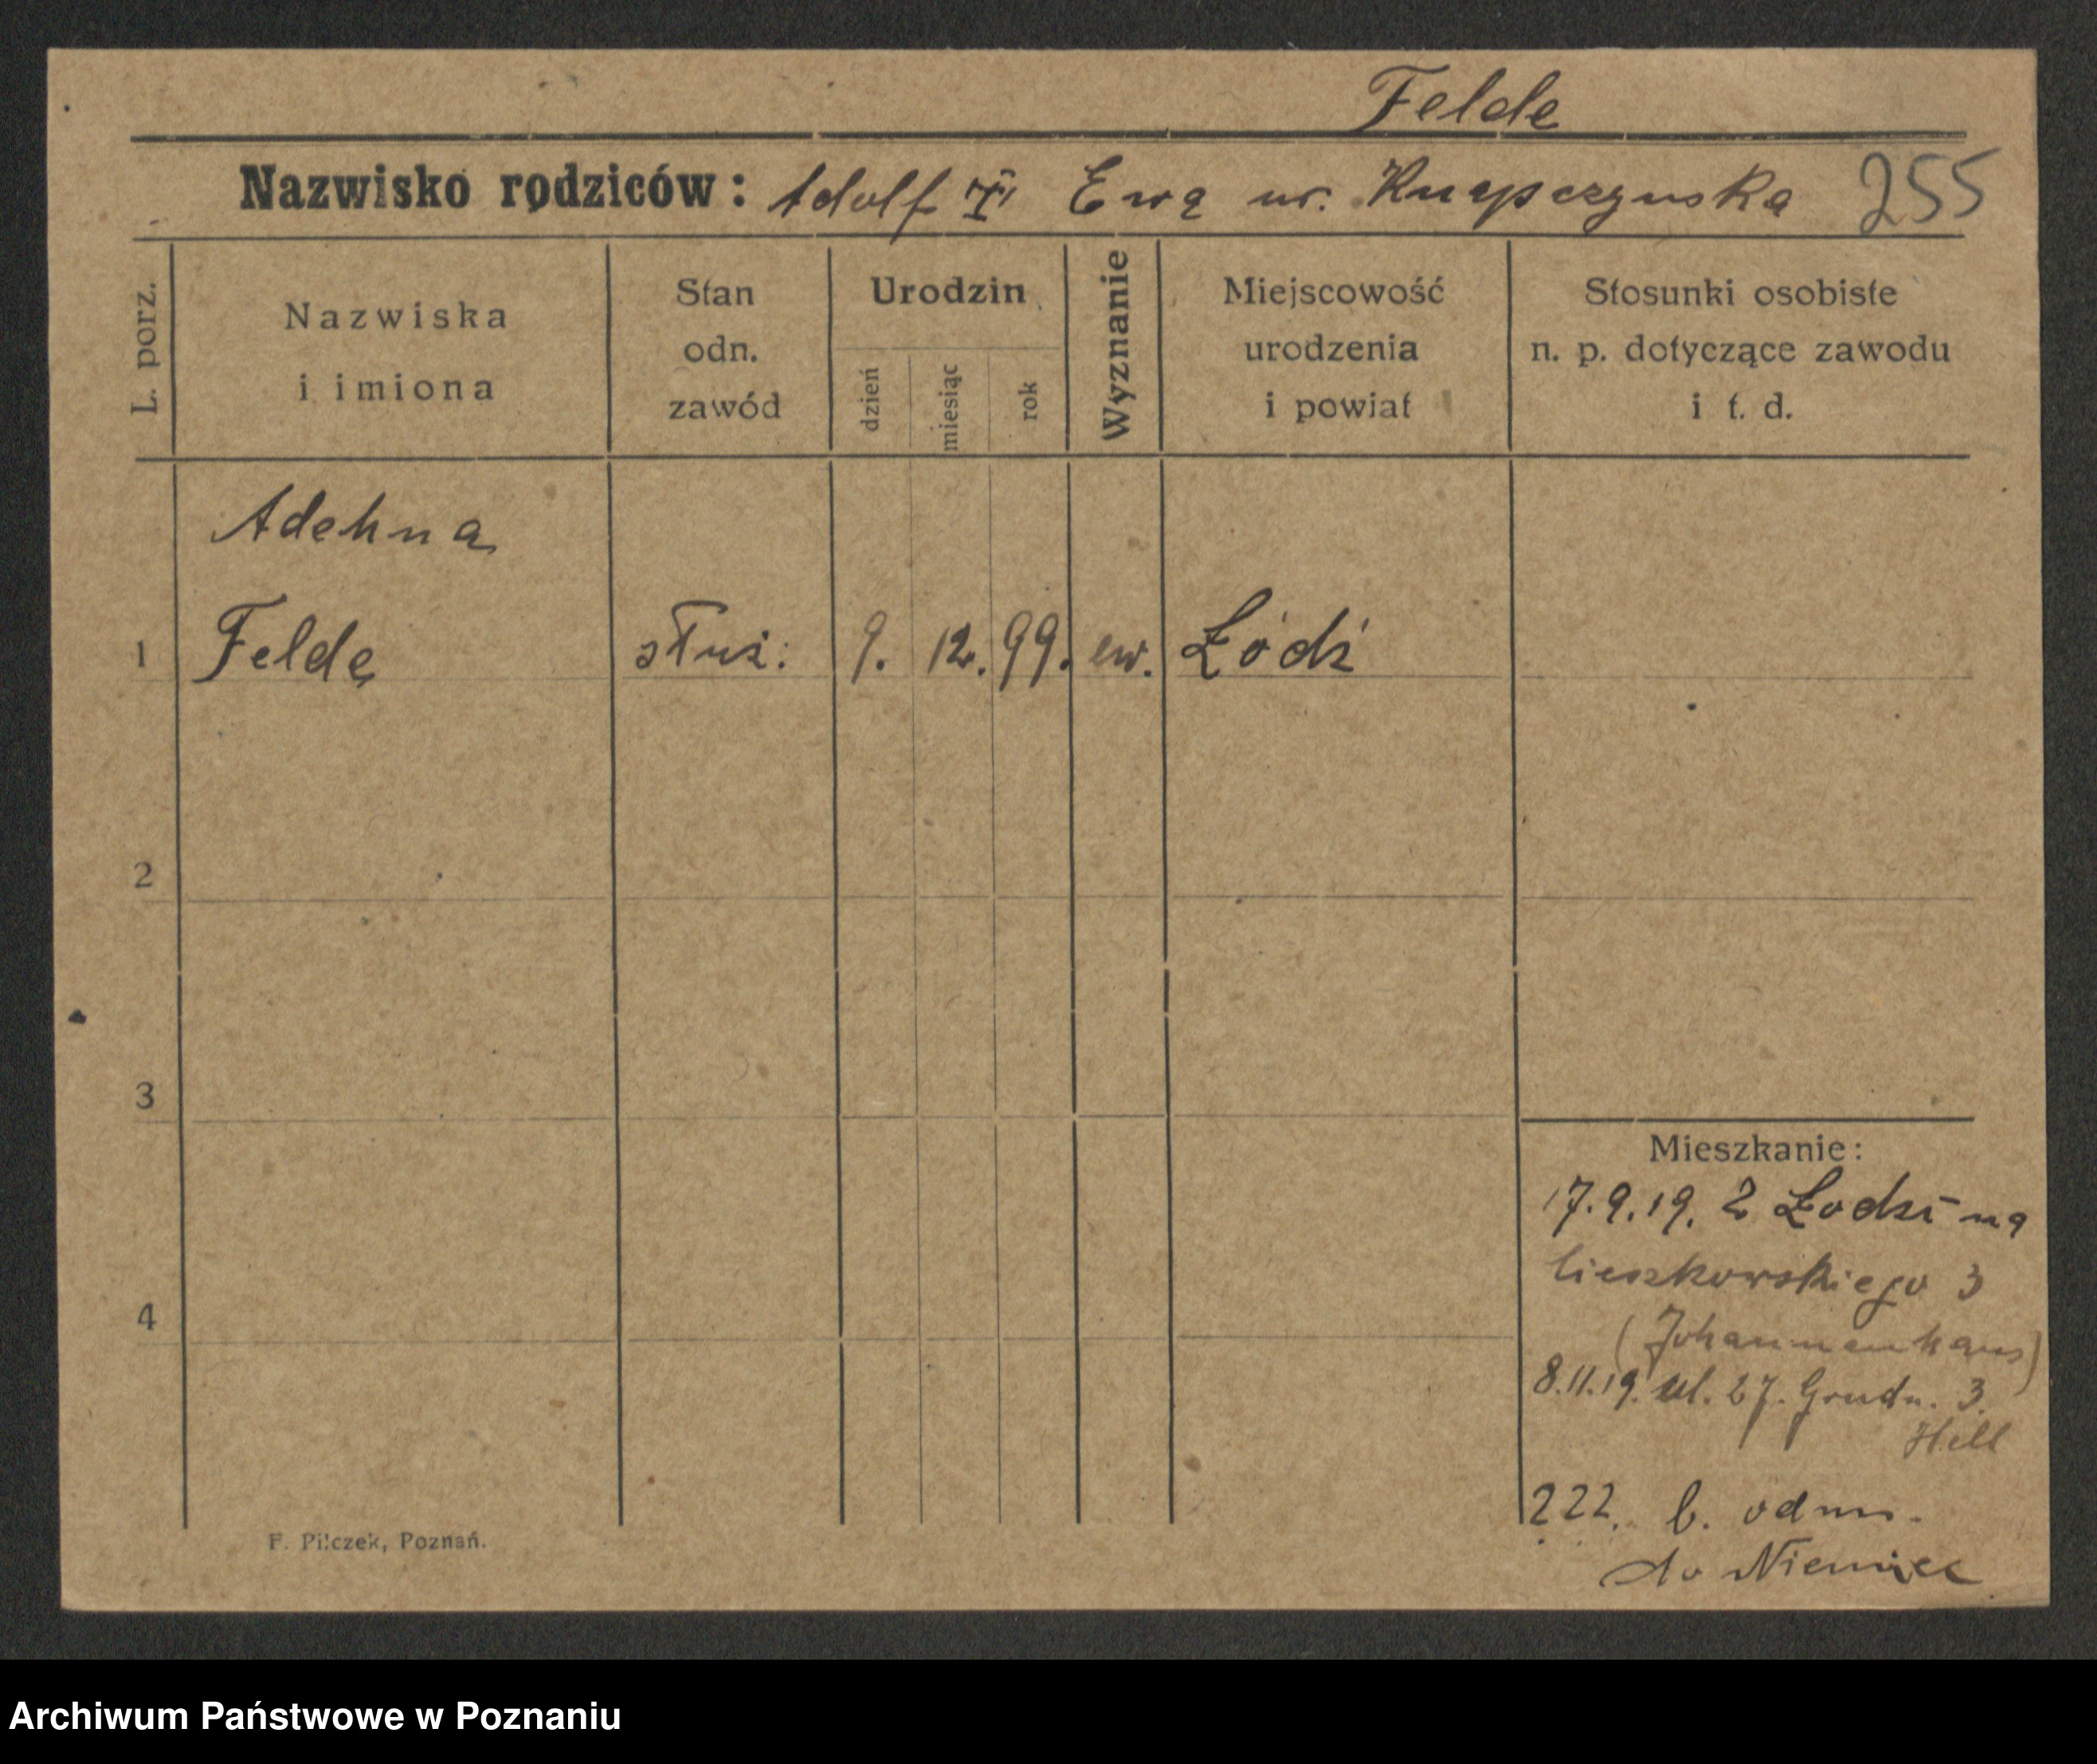 Felde
Nazwisko rodziców: Adolf Ewa ur. Knapczynska 255
L. porz.
Nazwiska i imiona
Stan odn. zawód
Urodzin
dzień
miesiąc
rok
Wyznanie
Miejscowość urodzenia i powiat
Stosunki osobiste n. p. dotyczące zawodu i t. d.
Adelina
1 Felde służ. 9. 12. 99. ew. Łódź
2
3
4
Mieszkanie:
17.9.19. z Łodzi na
Cieszkowskiego 3
(Johannenhaus)
8.11.19. ul. 27. Grudn. 3.
Hell
222. b. odm.
do Niemiec
F. Pilczek, Poznań.
Archiwum Państwowe w Poznaniu